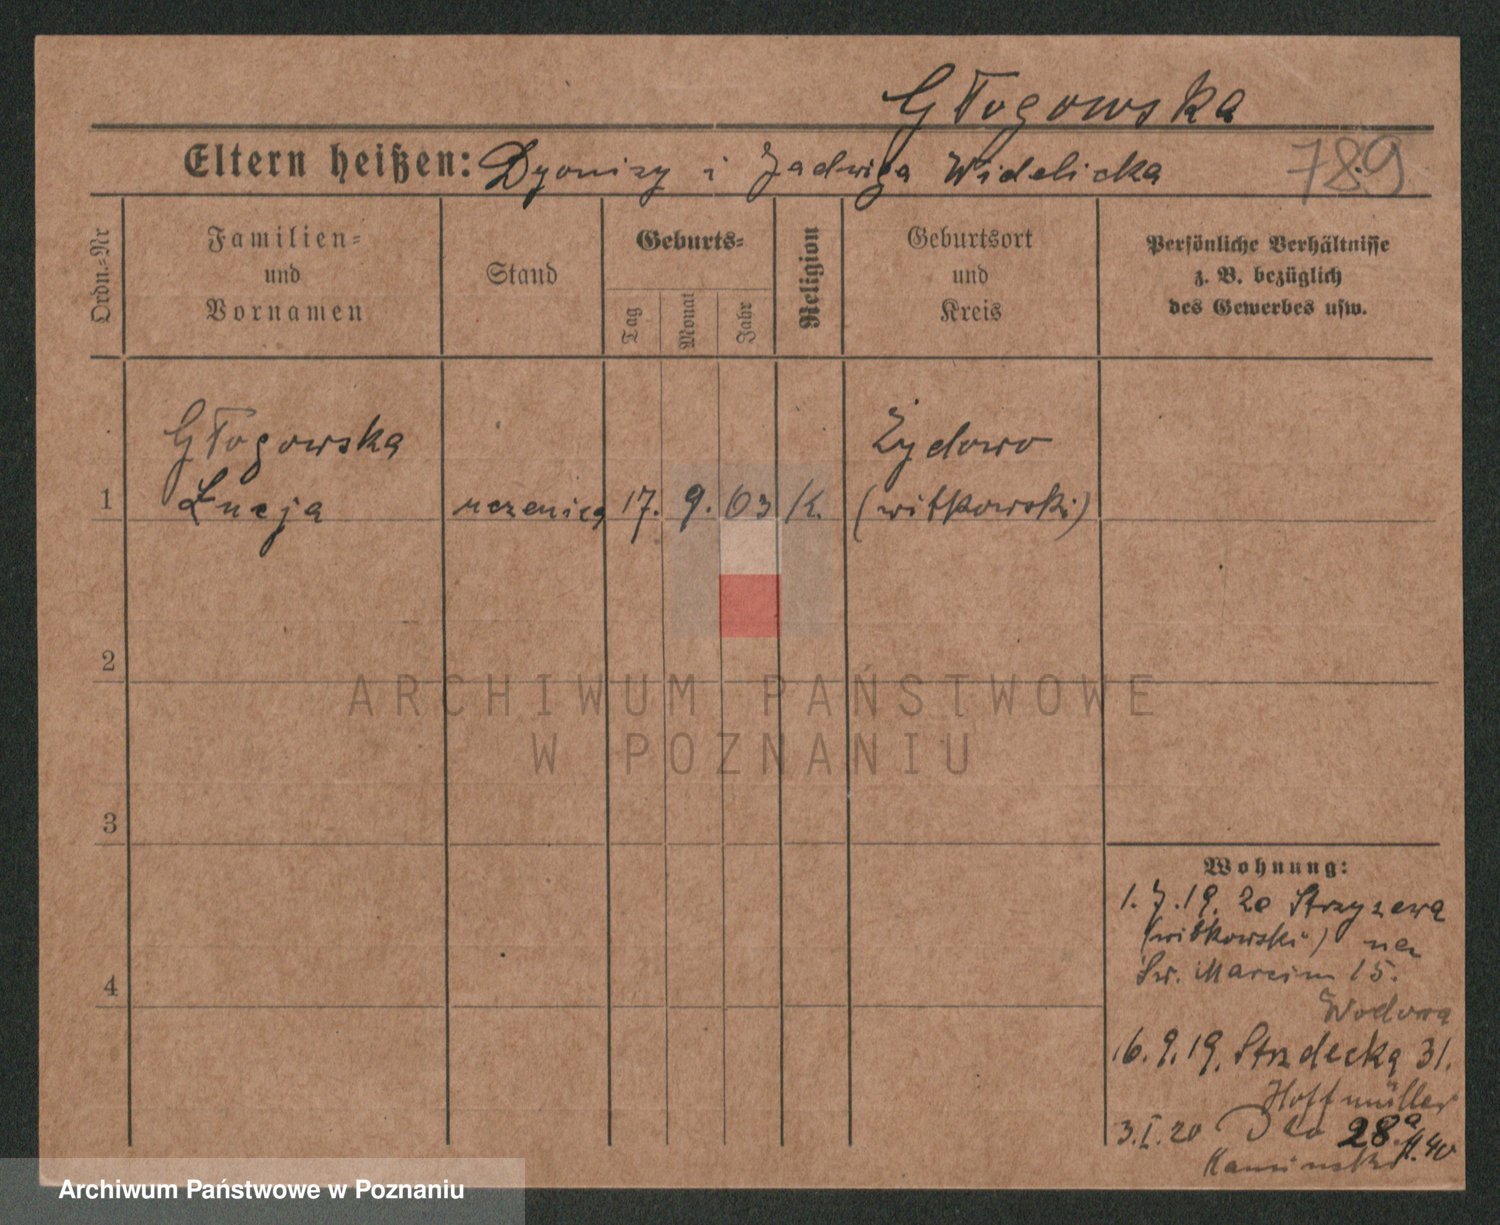 Głogowska
Eltern heißen: Dyonizy i Jadwiga Widelicka 789
Ordn.-Nr
Familien- und Vornamen
Stand
Geburts-
Tag Monat Jahr
Religion
Geburtsort und Kreis
Persönliche Verhältnisse
z. B. bezüglich
des Gewerbes usw.
Głogowska Żydowo
1 Łucja uczenica 17. 9. 03 K. (witkowski)
2
ARCHIWUM PAŃSTWOWE
W POZNANIU
3
Wohnung:
1. 7. 19. Strzyżewa
(witkowski) na
Św. Marcin 15.
4
Wodowa
16. 9. 19. Strzelecką 31.
Hoffmüller
3. I. 20 28a
Kaminski
Archiwum Państwowe w Poznaniu